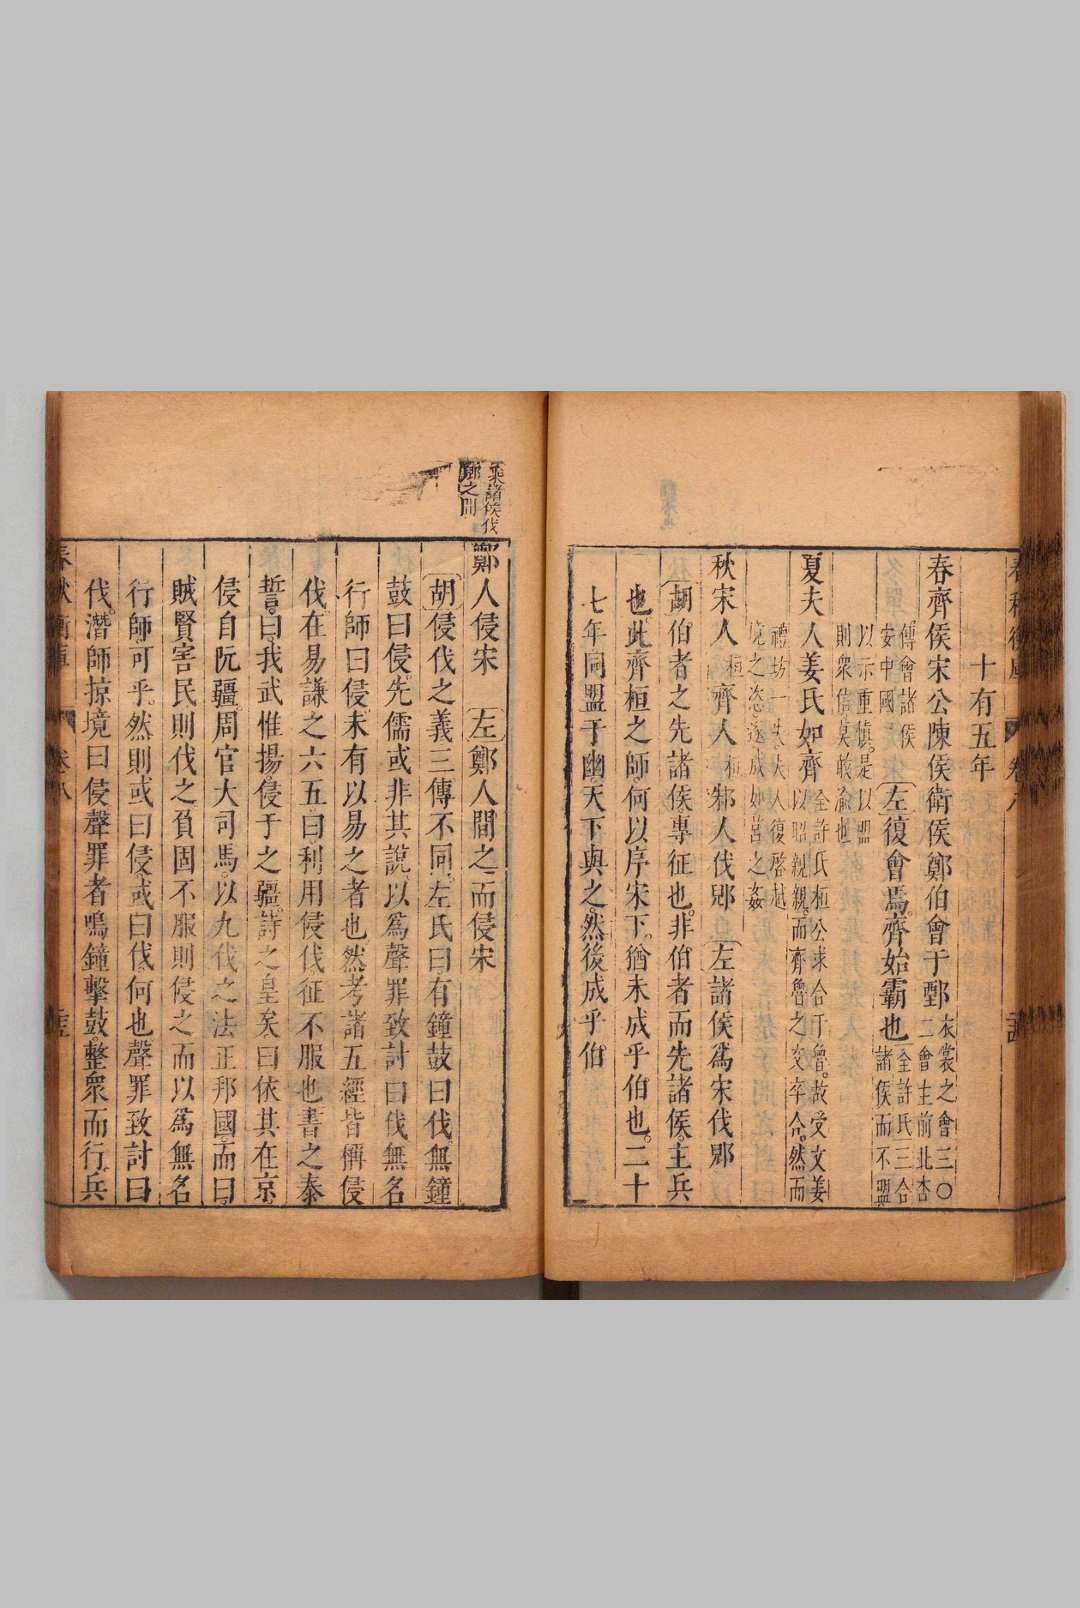 十有五年
春齊侯宋公陳侯衛侯鄭伯會于鄄衣裳之會三〇
二會主前北杏
傳會諸侯
安中國
左復會焉齊始霸也全許氏三合
諸侯而不盟
以示重慎是以盟
則衆信莫敢渝也
夏夫人姜氏如齊全許氏桓公求合于魯故受文姜
以昭親親而齊魯之交卒合然而
禮坊一失夫人復啓越
境之恣遂成如莒之姦
秋宋人桓齊人桓邾人伐郳左諸侯爲宋伐郳
胡伯者之先諸侯專征也非伯者而先諸侯主兵
也此齊桓之師何以序宋下猶未成乎伯也二十
七年同盟于幽天下與之然後成乎伯
乘諸侯伐
郳之間
鄭人侵宋 左鄭人間之而侵宋
胡侵伐之義三傳不同左氏曰有鐘鼓曰伐無鐘
鼓曰侵先儒或非其說以爲聲罪致討曰伐無名
行師曰侵未有以易之者也然考諸五經皆稱侵
伐在易謙之六五曰利用侵伐征不服也書之泰
誓曰我武惟揚侵于之疆詩之皇矣曰依其在京
侵自阮疆周官大司馬以九伐之法正邦國而曰
賊賢害民則伐之負固不服則侵之而以爲無名
行師可乎然則或曰侵或曰伐何也聲罪致討曰
伐潛師掠境曰侵聲罪者鳴鐘擊鼓整衆而行兵
春秋衡庫 卷八